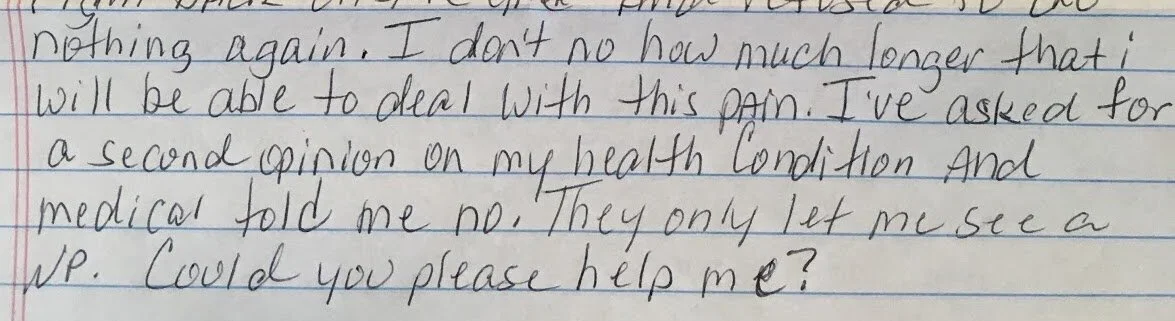 nothing again. I don't no how much longer that i
will be able to deal with this pAin. I've asked for
a second opinion on my health Condition And
medical told me no. They only let me see a
NP. Could you please help me?